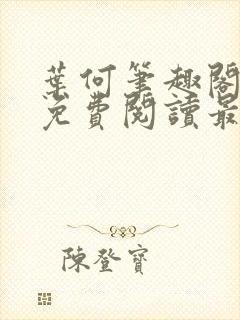 葉何筆趣閣
免費閱讀最
陳登寶